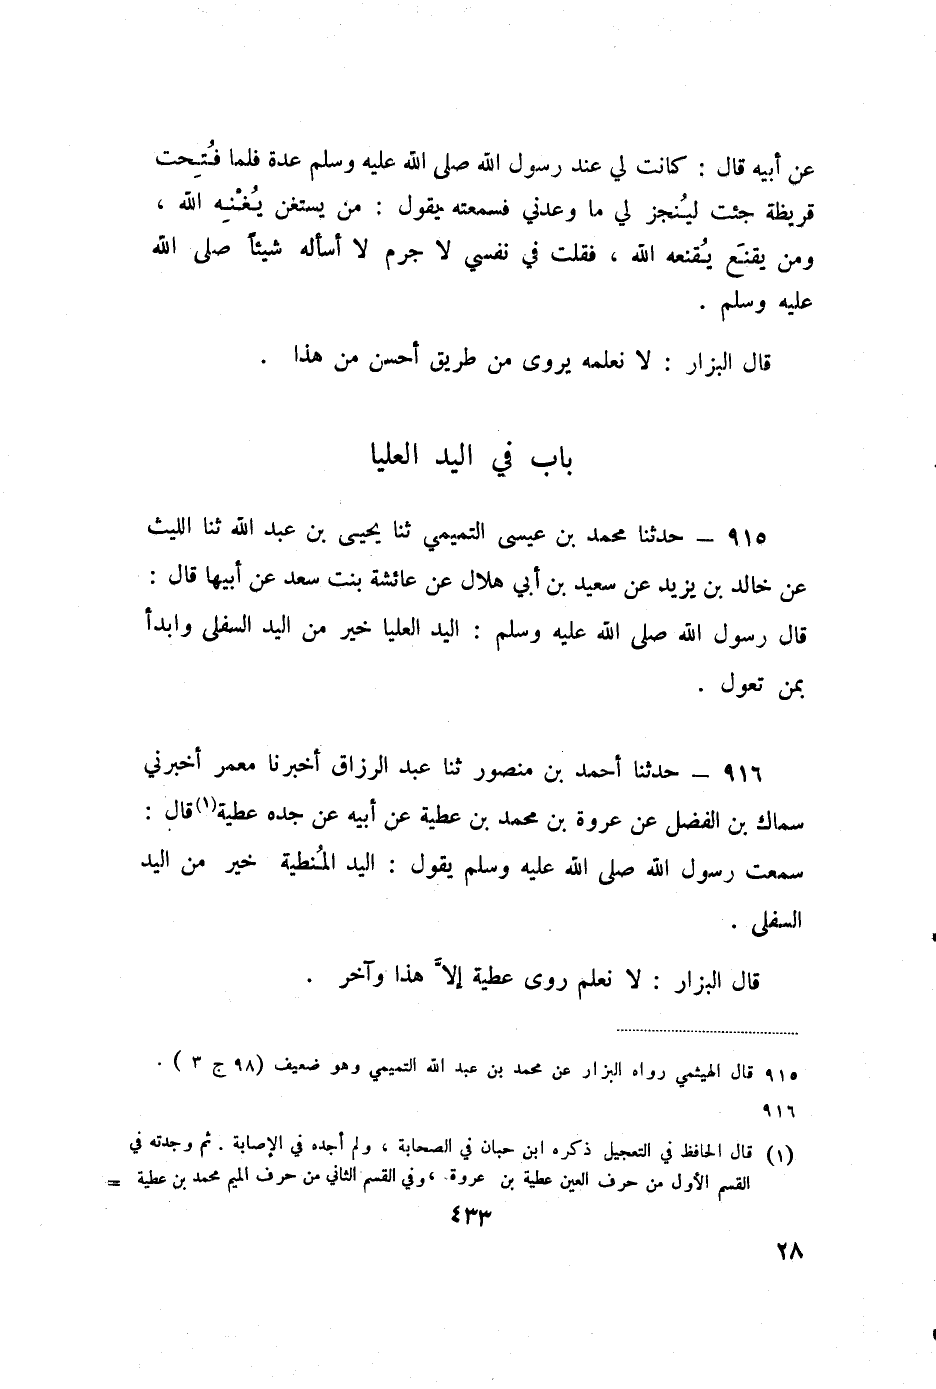 عن أبيه قال : كانت لي عند رسول الله صلى الله عليه وسلم عدة فلما فُتِحت
قريظة جئت ليُنجز لي ما وعدني فسمعته يقول : من يستغن يُغْنِه الله ،
ومن يقنَع يُقنعه الله ، فقلت في نفسي لا جرم لا أسأله شيئاً صلى الله
عليه وسلم .
قال البزار : لا نعلمه يروى من طريق أحسن من هذا .
باب في اليد العليا
٩١٥ – حدثنا محمد بن عيسى التميمي ثنا يحيى بن عبد الله ثنا الليث
عن خالد بن يزيد عن سعيد بن أبي هلال عن عائشة بنت سعد عن أبيها قال :
قال رسول الله صلى الله عليه وسلم : اليد العليا خير من اليد السفلى وابدأ
بمن تعول .
٩١٦ – حدثنا أحمد بن منصور ثنا عبد الرزاق أخبرنا معمر أخبرني
سماك بن الفضل عن عروة بن محمد بن عطية عن أبيه عن جده عطية(١) قال :
سمعت رسول الله صلى الله عليه وسلم يقول : اليد المُنطية خير من اليد
السفلى .
قال البزار : لا نعلم روى عطية إلاَّ هذا وآخر .
٩١٥ قال الهيثمي رواه البزار عن محمد بن عبد الله التميمي وهو ضعيف (٩٨ ج ٣ ) .
٩١٦
(١) قال الحافظ في التعجيل ذكره ابن حبان في الصحابة ، ولم أجده في الإصابة . ثم وجدته في
القسم الأول من حرف العين عطية بن عروة ، وفي القسم الثاني من حرف الميم محمد بن عطية =
٤٣٣
٢٨